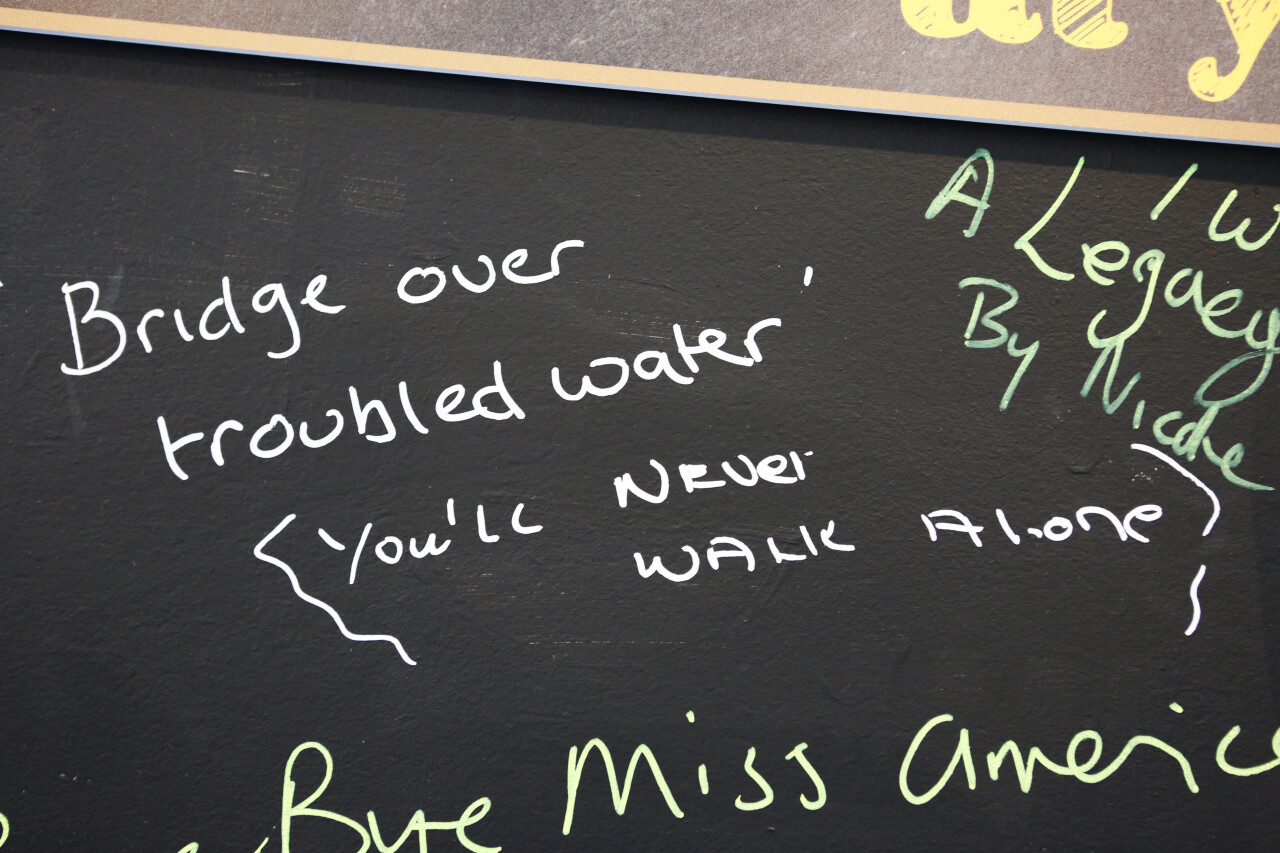 at y
A
I W
Legacy
By Nicole
'Bridge over
troubled water'
(You'll Never
Walk Alone)
Bye Miss Americ